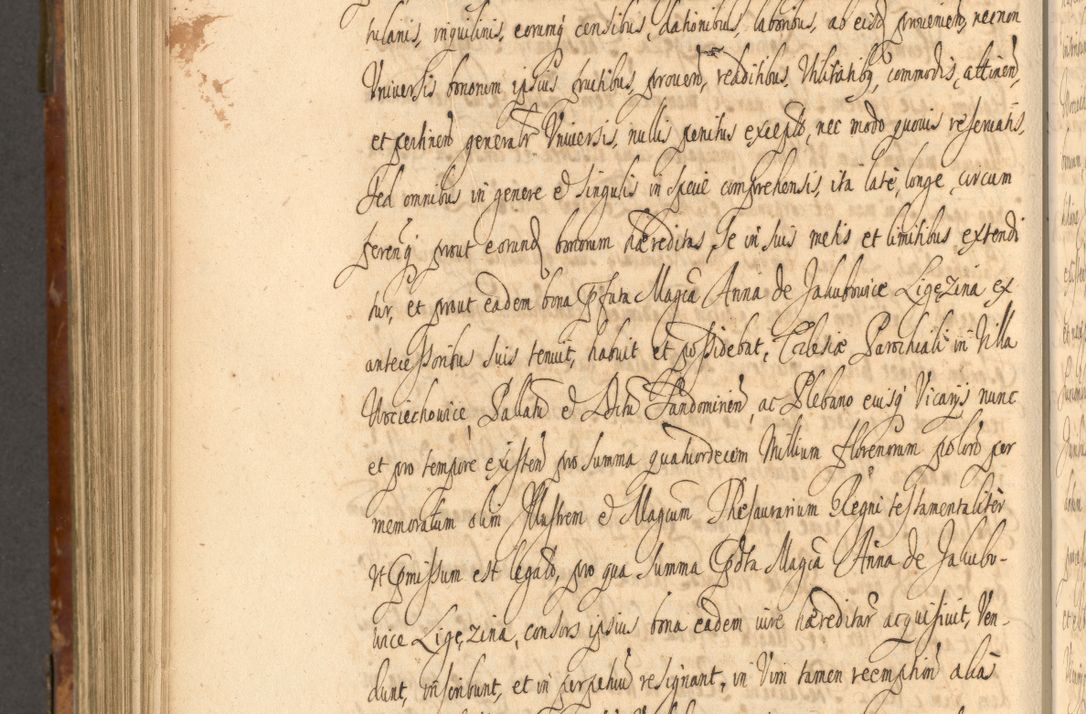 tulanis, inquilinis, eorumq censibus, dationibus, laboribus, ab eisd provenien, necnon
Universis bonorum ipsius fructibus, proven, redditibus, Utilitatibq, commodis, attinen,
et pertinen generalr Universis, nullis penitus excepto, nec modo quovis reservatis,
Sed omnibus in genere et Singulis in specie comprehensis, ita late, longe, circum
ferenq prout eorund bonorum hæreditas, Se in suis metis et limitibus extendi
tur, et prout eadem bona Pfata Magca Anna de Jakubowice Ligęzina ex
antecessoribus suis tenuit, habuit et possidebat, Ecclesiæ Parochiali in Villa
Wociechowice, Pallatu et Dttu Sandomirien, ac Plebano eiusq Vicarijs nunc
et pro tempore existen pro Summa quatuordecem Millium florenorum polo per
memoratum olim Illustrem et Magcum Thesaurarium Regni testamentaliter
vt Pmissum est legato, pro qua Summa Pdta Magca Anna de Jakubo-
wice Ligęzina, consors ipsius bona eadem iure hæreditar acquisivit, Ven-
dunt, inscribunt, et in perpetuu resignant, in Vim tamen reemption alias